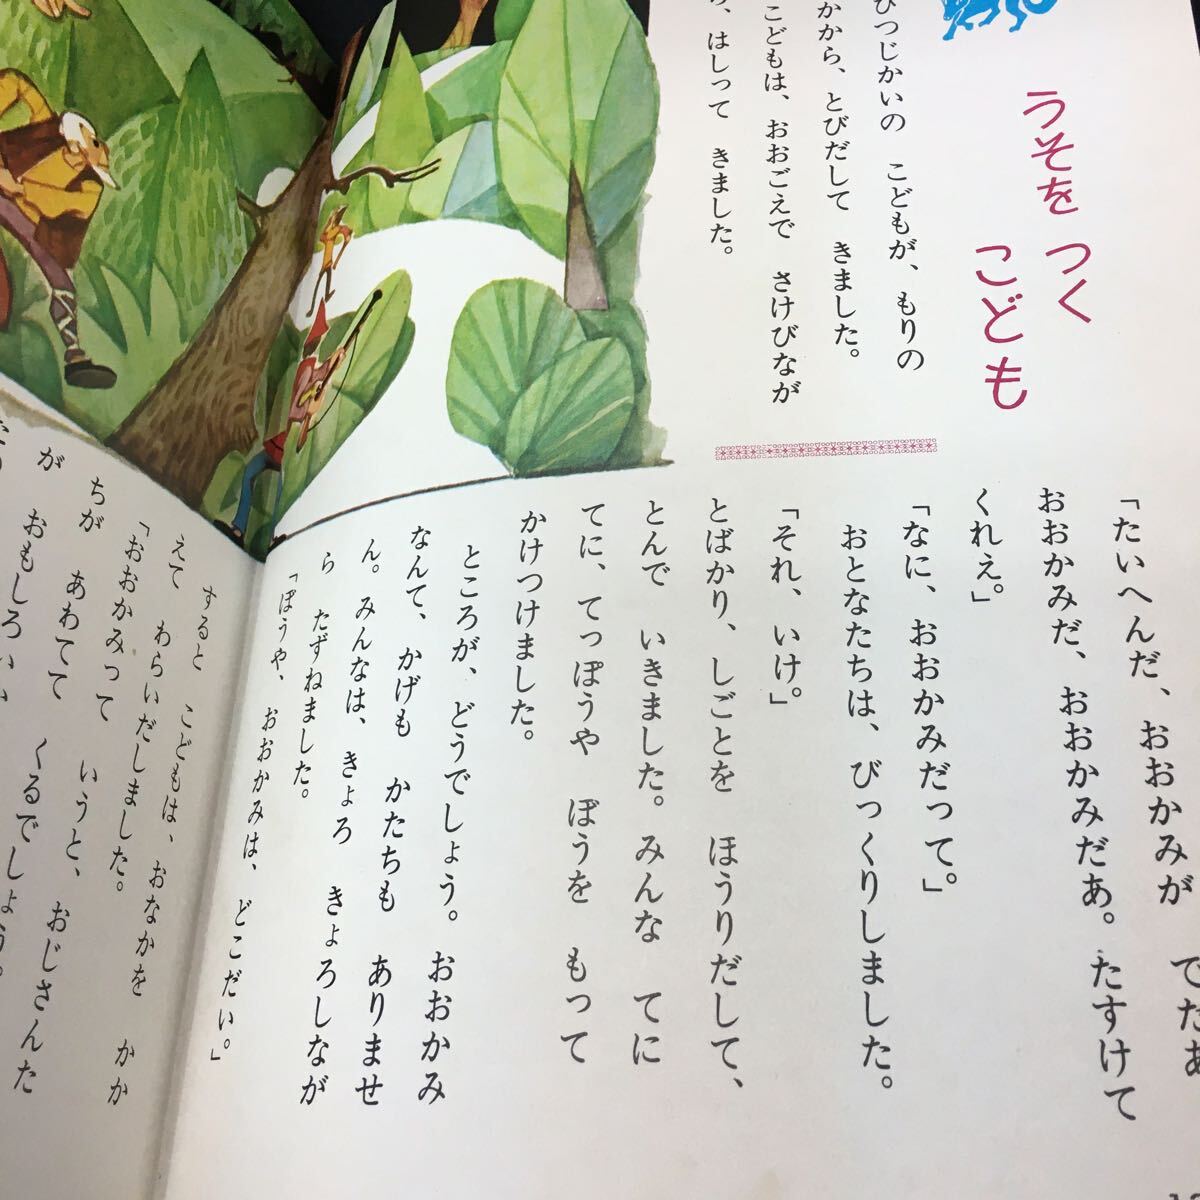 うそを つく
こども
ひつじかいの こどもが、もりの
かから、とびだして きました。
こどもは、おおごえで さけびなが
ら、はしって きました。
「たいへんだ、おおかみが でたあ
おおかみだ、おおかみだあ。たすけて
くれえ。」
「なに、おおかみだって。」
おとなたちは、びっくりしました。
「それ、いけ。」
とばかり、しごとを ほうりだして、
とんで いきました。みんな てに
てに、てっぽうや ぼうを もって
かけつけました。
ところが、どうでしょう。おおかみ
なんて、かげも かたちも ありませ
ん。みんなは、きょろ きょろしなが
ら たずねました。
「ぼうや、おおかみは、どこだい。」
すると こどもは、おなかを かか
えて わらいだしました。
「おおかみって いうと、おじさんた
ちが あわてて くるでしょう。
が おもしろい